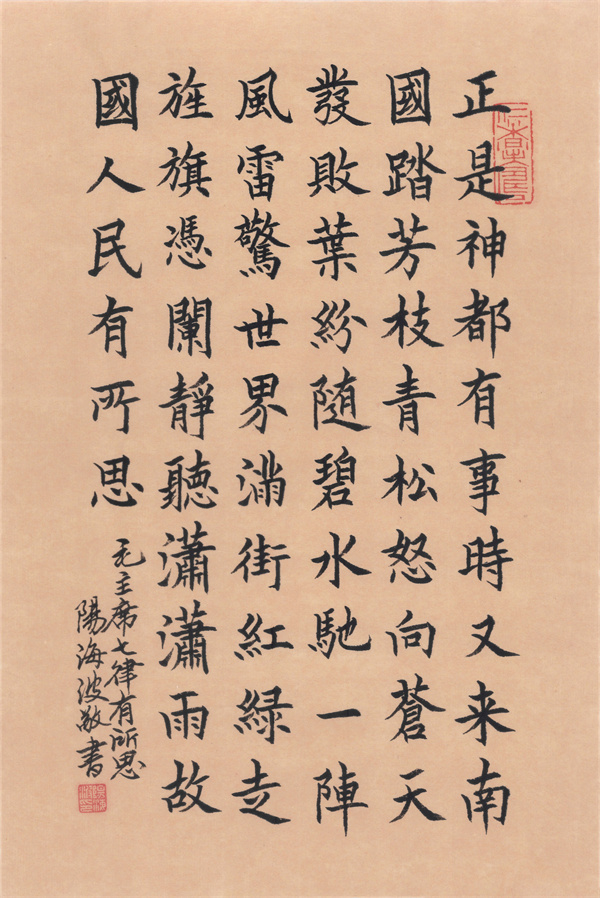 正是神都有事時又来南
國踏芳枝青松怒向蒼天
發敗葉紛随碧水馳一陣
風雷驚世界滿街紅緑走
旌旗憑闌靜聽瀟瀟雨故
國人民有所思
毛主席七律有所思
陽海波敬書